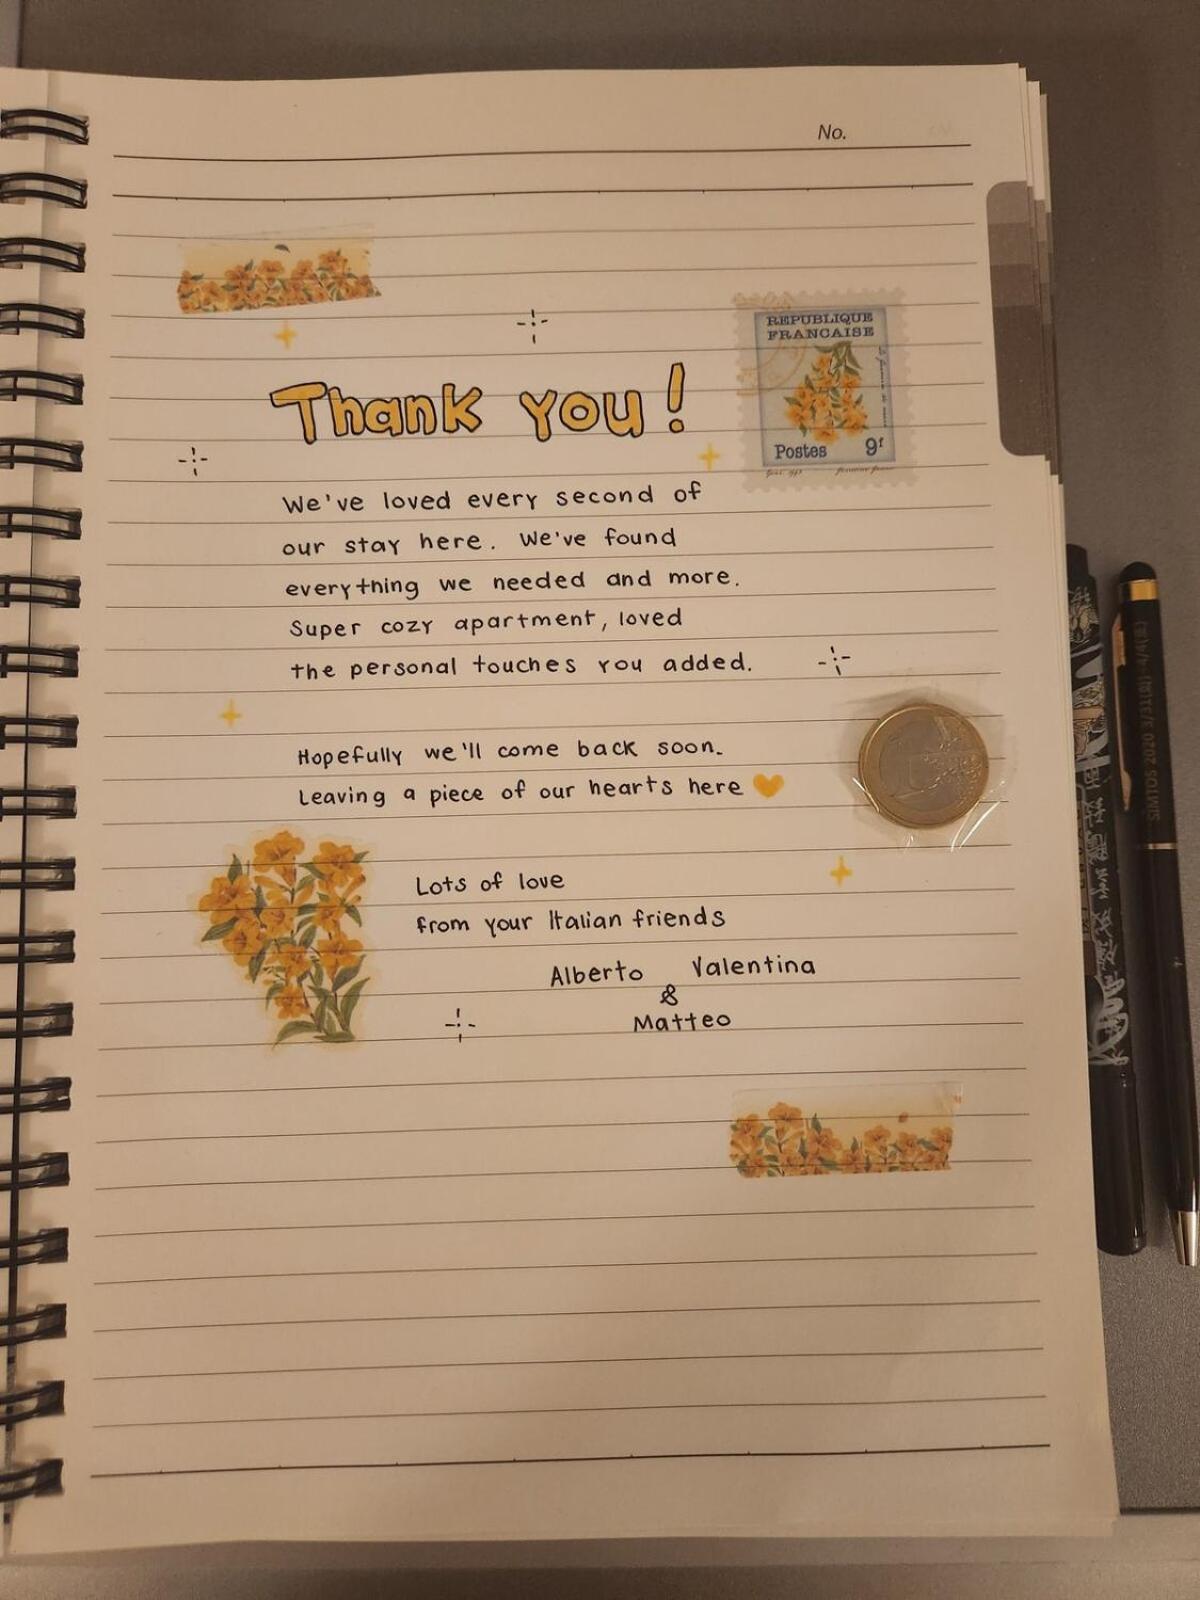 No.
REPUBLIQUE
FRANCAISE
Thank you!
Postes 9f
We've loved every second of
our stay here. We've found
everything we needed and more.
Super cozy apartment, loved
the personal touches you added.
Hopefully we'll come back soon.
Leaving a piece of our hearts here
1
Lots of love
from your Italian friends
Alberto Valentina
&
Matteo
SIMTOS 2020 3/31(화)-4/4(토)